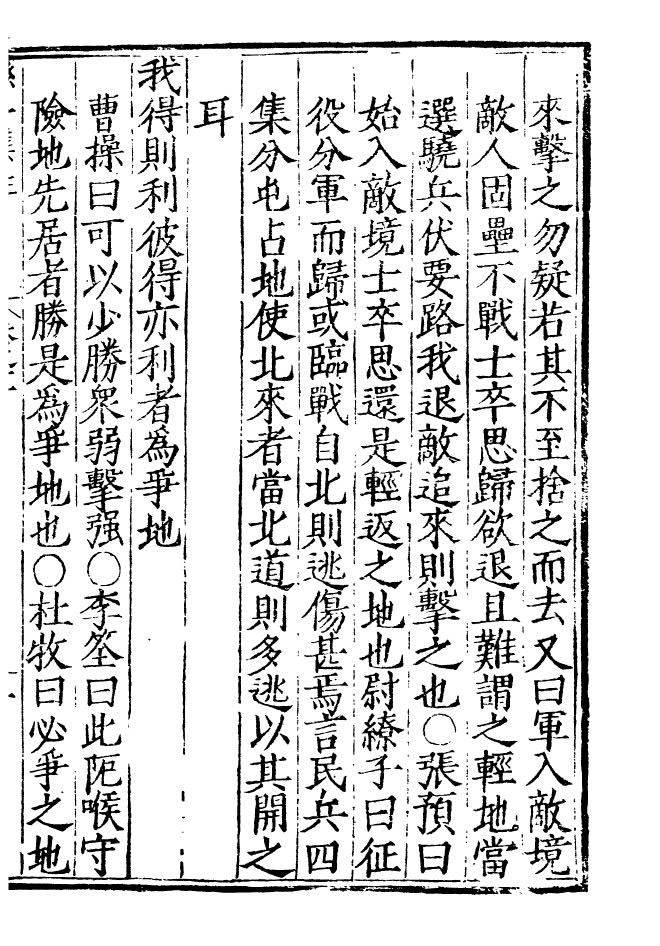 來擊之勿疑若其不至捨之而去又曰軍入敵境
敵人固壘不戰士卒思歸欲退且難謂之輕地當
選驍兵伏要路我退敵追來則擊之也○張預曰
始入敵境士卒思還是輕返之地也尉繚子曰征
役分軍而歸或臨戰自北則逃傷甚焉言民兵四
集分屯占地使北來者當北道則多逃以其開之
耳
我得則利彼得亦利者爲爭地
曹操曰可以少勝衆弱擊强○李筌曰此阨喉守
險地先居者勝是爲爭地也○杜牧曰必爭之地